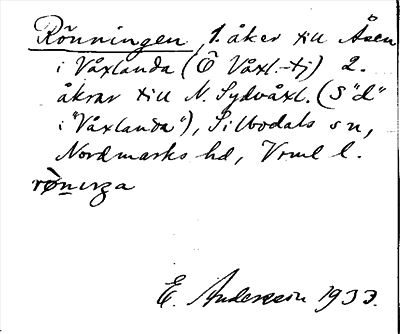 Rönningen, 1. åker till Åsen
i Våxlanda (Ö Våxl.-tj) 2.
åkrar till N. Sydvåxl. (S "d"
i "Våxlanda"), Silbodals sn,
Nordmarks hd, Vrml l.
E. Andersson 1933.